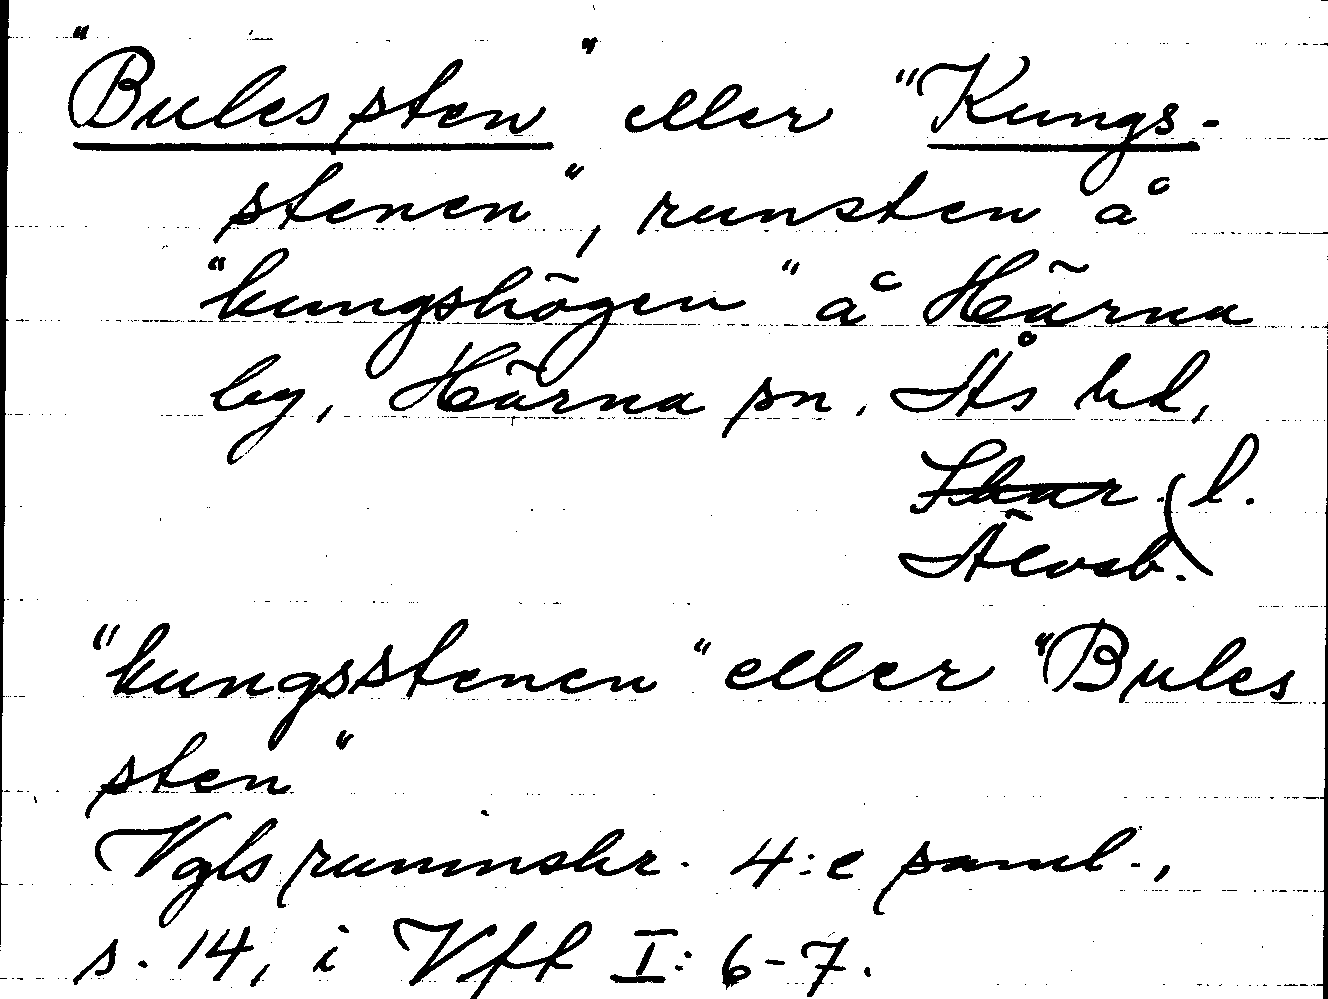 "Bules sten" eller "Kungs-
stenen", runsten å
"kungshögen" å Härna
by, Härna sn, Ås hd,
Skar. l.
Älvsb.
"kungsstenen" eller "Bules
sten"
Vgls runinskr. 4:e saml.,
s. 14, i Vfft I: 6-7.